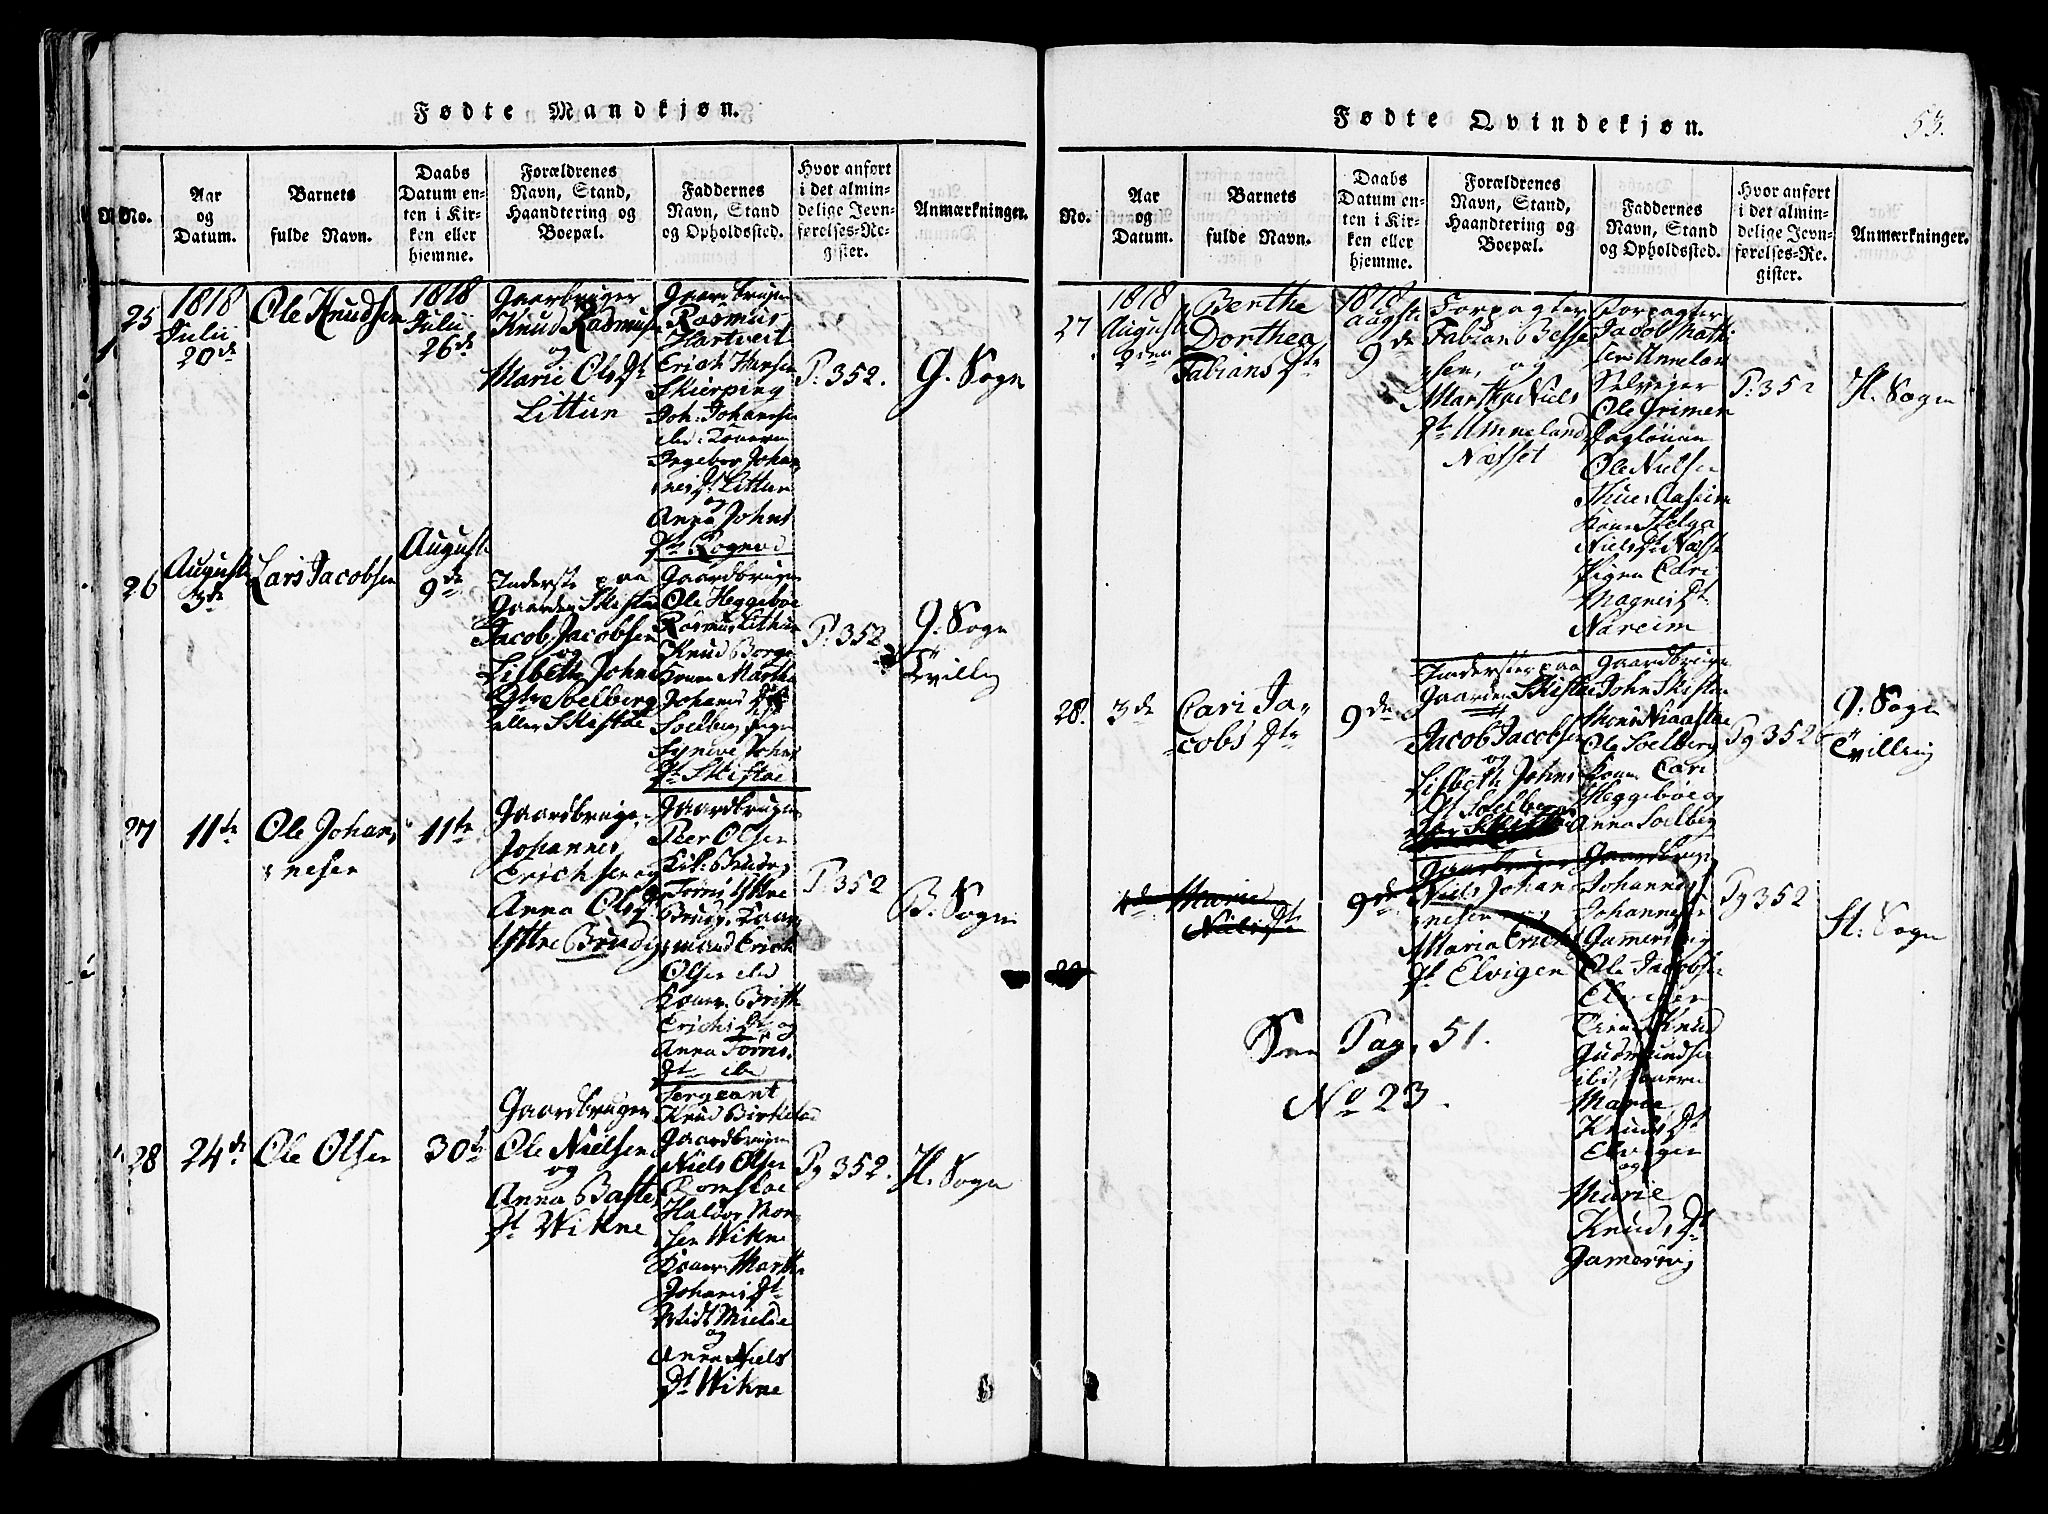 Fødte Mandkjøn.
No.
Aar og Datum.
Barnets fulde Navn.
Daabs Datum enten i Kirken eller hjemme.
Forældrenes Navn, Stand, Haandtering og Boepæl.
Faddernes Navn, Stand og Opholdssted.
Hvor anført i det almindelige Jevnførelses-Register.
Anmærkninger.
25
1818
Julii
20de
Ole Knudsen
1818
Julii
26de
Gaardbruger
Knud Rasmus
og
Marie Ols Dt
Littun
Gaardbruger
Rasmus
Hartveit
Erich Hansen
Skierping
Joh: Johannesen
ibd: Konerne
Ingebor Johan
nes Dt Littun
og
Anna Johns
Dt Rognød
P: 352.
G. Sogn
26
August
3de
Lars Jacobsen
August
9de
Inderste paa
Gaarden Skistae
Jacob Jacobsen
og
Lisbeth Johns
Dtr Soelberg
eller Skistae
Gaardbruger
Ole Heggebøe
Rasmus Littun
Knud Borge
Koner Martha
Johanis Dt
Soelberg Pigen
Synneve Johns
Dt Skistae
P: 352
G: Sogn
Tvilling
27
11te
Ole Johan
nesen
11te
Gaardbruger
Johannes
Erichsen og
Anna Ols Dt
Yttre Brudvig
Gaardbruger
Peer Olsen
Torris Yttre
Brudv:
mand Erich
Olsen ibd
Koner Britte
Erichs Dt og
Anna Torris
Dt ibd
P. 352
B. Sogn
28
24de
Ole Olsen
30te
Gaardbruger
Ole Nielsen
og
Anna Baste
Dt Wikne
Sergeant
Knud Birkeland
Gaardbruger
Niels Olsen
Romsloe
Haldor Mon
sen Wikne
Koner Martha
Johanis Dt
Midt Mielde
og
Anna Niels
Dt Wikne
Pg 352.
H. Sogn
Fødte Qvindekjøn.
53.
No.
Aar og Datum.
Barnets fulde Navn.
Daabs Datum enten i Kirken eller hjemme.
Forældrenes Navn, Stand, Haandtering og Boepæl.
Faddernes Navn, Stand og Opholdssted.
Hvor anført i det almindelige Jevnførelses-Register.
Anmærkninger.
27
1818
August
2den
Berthe
Dorthea
Fabians Dtr
1818
August
9de
Forpagter
Fabian Besse
sen, og
Martha Niels
Dt Unneland
Næsset
Forpagter
Jacob Math
sen Unneland
Selveger
Ole Grimen
Ole Nielsen
Thues Aaseim
Koner Helga
Niels Dt Næsse
Pigen Cari
Magnes Dt
Nareim
P: 352
H. Sogn
28.
3de
Cari Ja-
cobs Dtr
9de
Inderste paa
Gaarden Skistae
Jacob Jacobsen
og
Lisbeth Johns
Dt Soelberg
Gaardbruger
John Skistae
Mons Niaastae
Ole Soelberg
Koner Cari
Heggebøe og
Anna Soelberg
Pg 352
G. Sogn
Tvilling
29
4de
Marie
Niels Dt
9de
Gaardbruger
Niels Johan
nesen og
Maria Erichs
Dt Elvigen
Gaardbruger
Johannes
Johannesen
Gamersvig
Ole Jacobsen
Elvigen
Knud
Gudmundsen
ibd Konerne
Marie
Knuds Dt
Elvigen
og
Marie
Knuds Dt
Gamersvig
Pg 352
H. Sogn
See Pag. 51.
No 23.